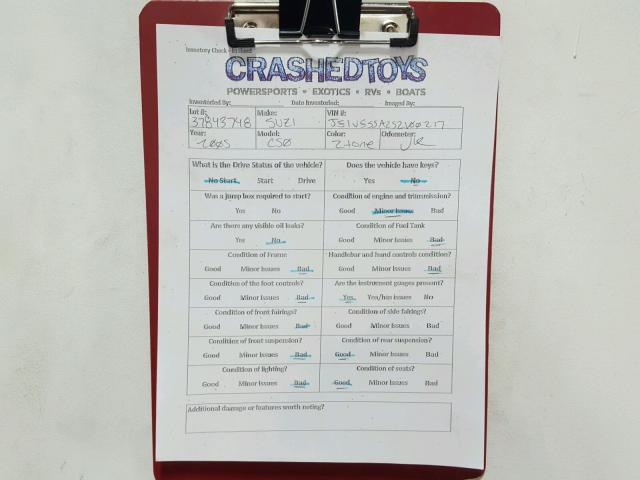 Inventory Check - In Sheet
CRASHEDTOYS
POWERSPORTS • EXOTICS • RVs • BOATS
Inventoried By: Date Inventoried: Imaged By:
Lot #: Make: VIN #:
37843748 SUZI JS1VS55A252100217
Year: Model: Color: Odometer:
2005 C50 2tone
What is the Drive Status of the vehicle? Does the vehicle have keys?
No Start Start Drive Yes No
Was a jump box required to start? Condition of engine and transmission?
Yes No Good Minor Issues Bad
Are there any visible oil leaks? Condition of Fuel Tank
Yes No Good Minor Issues Bad
Condition of Frame Handlebar and hand controls condition?
Good Minor Issues Bad Good Minor Issues Bad
Condition of the foot controls? Are the instrument gauges present?
Good Minor Issues Bad Yes Yes/has issues No
Condition of front fairings? Condition of side fairings?
Good Minor Issues Bad Good Minor Issues Bad
Condition of front suspension? Condition of rear suspension?
Good Minor Issues Bad Good Minor Issues Bad
Condition of lighting? Condition of seats?
Good Minor Issues Bad Good Minor Issues Bad
Additional damage or features worth noting?